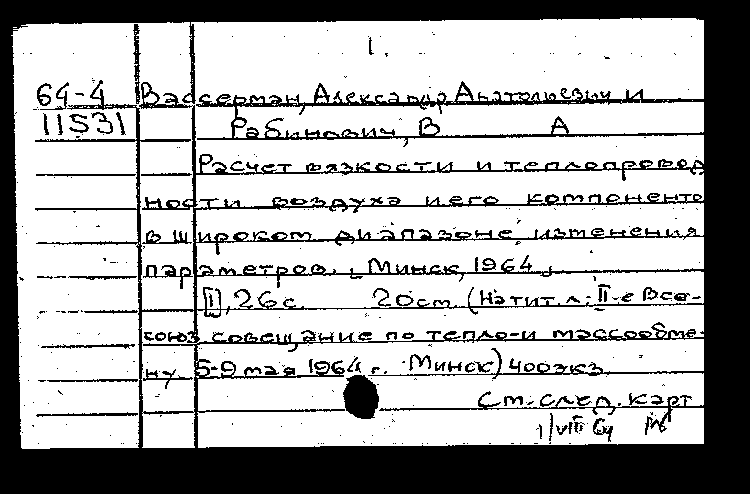 1.
64-4 Вассерман, Александр Анатольевич и
11531 Рабинович, В А
Расчет вязкости и теплопровод
ности воздуха и его компоненто
в широком диапазоне изменения
параметров. [Минск, 1964]
[1], 26 с. 20 см. (На тит. л.: II-е Все-
союз совещание по тепло-и массообме-
ну 5-9 мая 1964 г. Минск) 400 экз.
См. след. карт
1/VIII 64